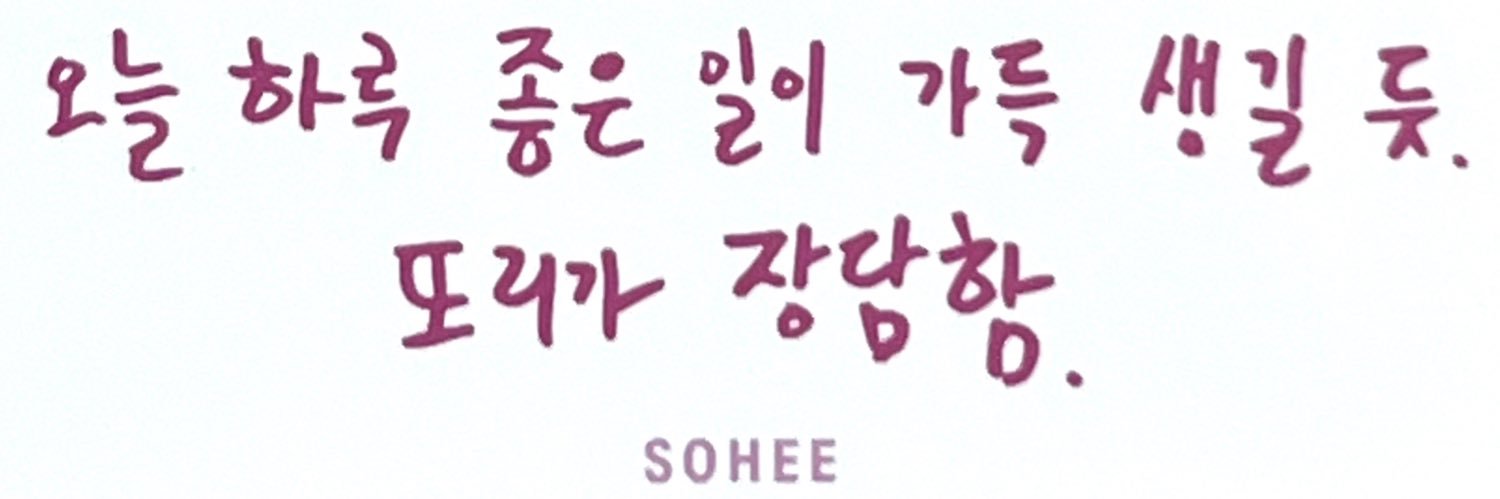 오늘 하루 좋은 일이 가득 생길 듯.
또리가 장담함.
SOHEE